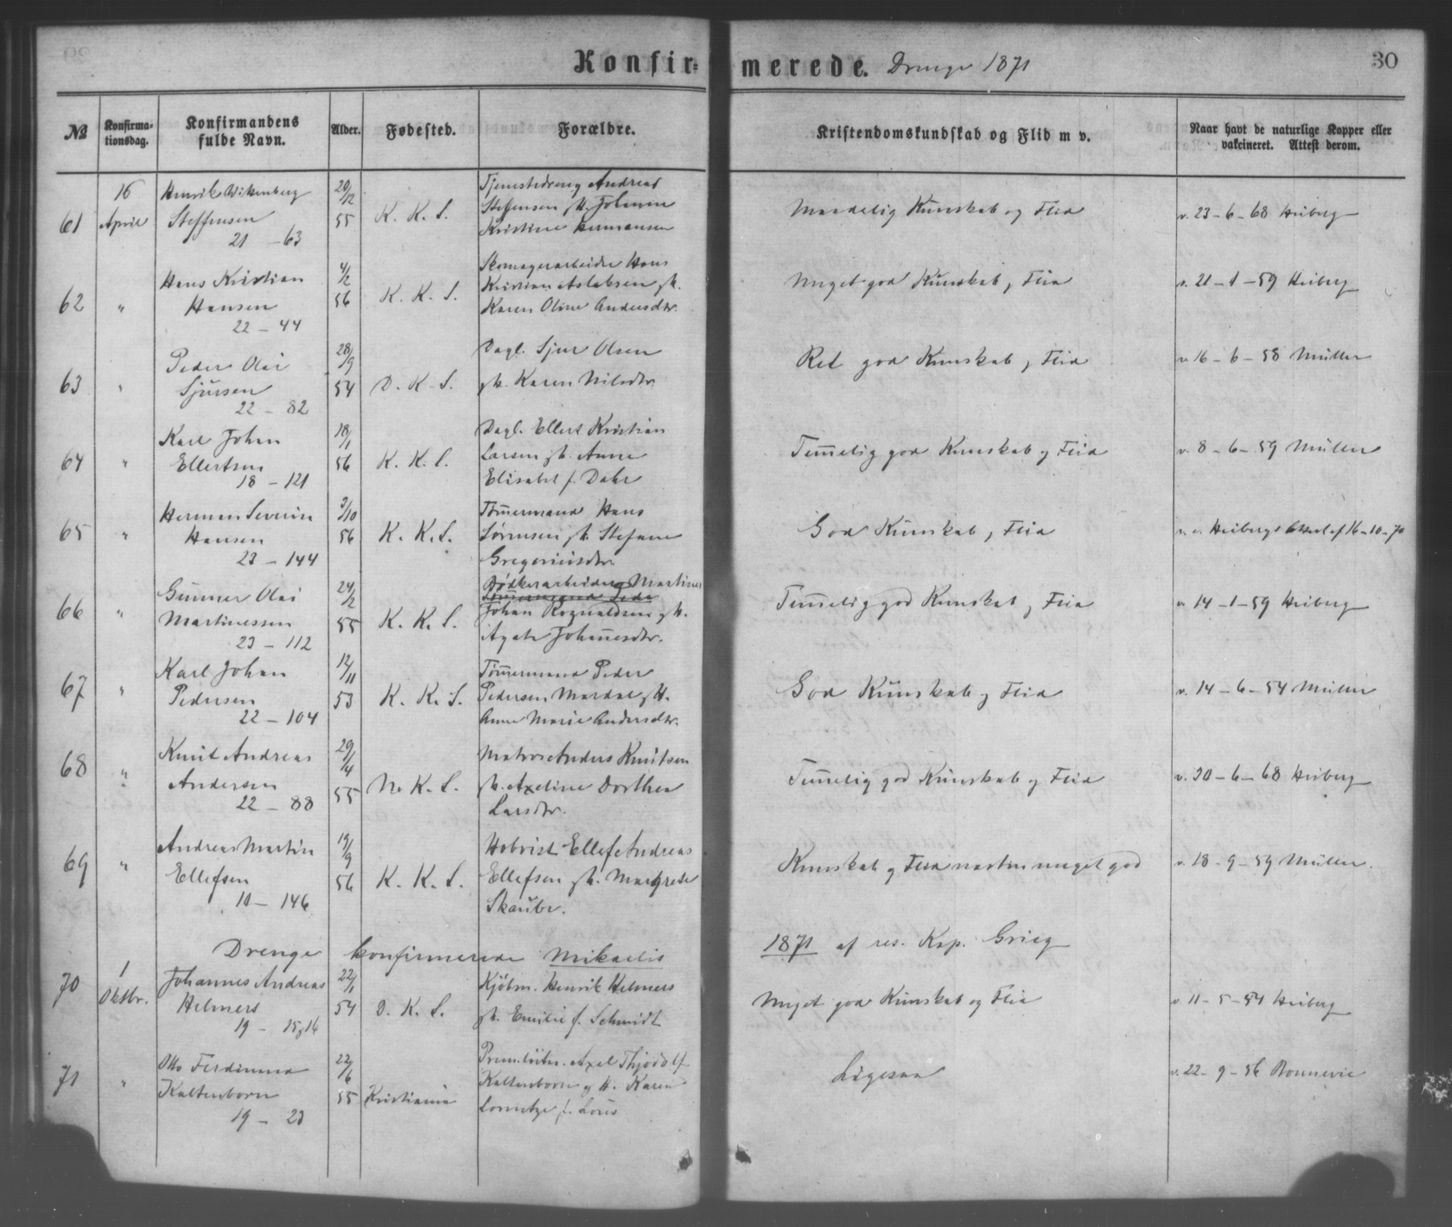 Konfirmerede. Drenge 1871
30
№
Konfirmationsdag.
Konfirmandens fulde Navn.
Alder.
Fødested.
Forældre.
Kristendomskundskab og Flid m v.
Naar havt de naturlige Kopper eller vakcineret. Attest derom.
61 16 April Henrik Wittenberg Steffensen 21 - 63 20/12 55 K. K. S. Tjenestedreng Andreas
Steffensen gh. Johanne
Kristine Hermansen
Maadelig Kunskab og Flid v. 23 - 6 - 68 Heiberg
62 " Hans Kristian Hansen 22 - 44 4/2 56 K. K. S. Skomagerarbeider Hans
Kristian Aslaksen gh.
Karen Oline Andersdtr.
Meget god Kunskab g Flid v. 21 - 1 - 59 Heiberg
63 " Peder Olai Sjursen 22 - 82 28/9 54 D. K. S. Dagl. Sjur Olsen
gh. Karen Nilsdtr.
Ret god Kunskab g Flid v. 16 - 6 - 58 Müller
64 " Karl Johan Ellertsen 18 - 121 18/1 56 K. K. S. Dagl. Ellert Kristian
Larsen gh. Anna
Elisabet f. Dahr
Temelig god Kunskab g Flid v. 8 - 6 - 59 Müller
65 " Herman Severin Hansen 23 - 144 3/10 56 K. K. S. Tømermand Hans
Sørensen gh. Stefane
Gregoriusdtr.
God Kunskab g Flid v. e. Heibergs Attest af 16 - 10 - 70
66 " Gunner Olai Martinessen 23 - 112 24/2 55 K. K. S. Bødkerarbeider Martines
Tømermand Peder
Johan Rognaldsen gh.
Agate Johanesdtr.
Temelig god Kunskab g Flid v. 14 - 1 - 59 Heiberg
67 " Karl Johan Pedersen 22 - 104 12/11 53 K. K. S. Tømermand Peder
Pedersen Mardal gh.
Anne Marie Andersdtr.
God Kunskab g Flid v. 14 - 6 - 54 Müller
68 " Knut Andreas Andersen 22 - 88 29/4 55 N. K. S. Matros Anders Knutsen
gh. Axeline Dorthea
Larsdtr.
Temelig god Kunskab g Flid v. 20 - 6 - 68 Heiberg
69 " Andreas Martin Ellefsen 10 - 146 19/9 56 K. K. S. Ellef Andreas
Ellefsen gh. Margrete
Skaubr.
Kunskab g Flid næsten meget god v. 18 - 9 - 59 Müller.
Drenge konfirmerede Mikaelis 1871 af res. Kap. Grieg
70 1 Oktbr. Johannes Andreas Helmers 19 - 15g16 22/1 54 D. K. S. Kjøbm. Henrik Helmers
gh. Emilie f. Schmidt
Meget god Kunskab og Flid v. 11 - 5 - 54 Heiberg
71 " Otto Ferdinand Kaltenborn 19 - 23 22/6 55 Kristiania Premlöitn. Axel Thjodolf
Kaltenborn g h. Karen
f.
Ligesaa v. 22 - 9 - 56 Bonnevie